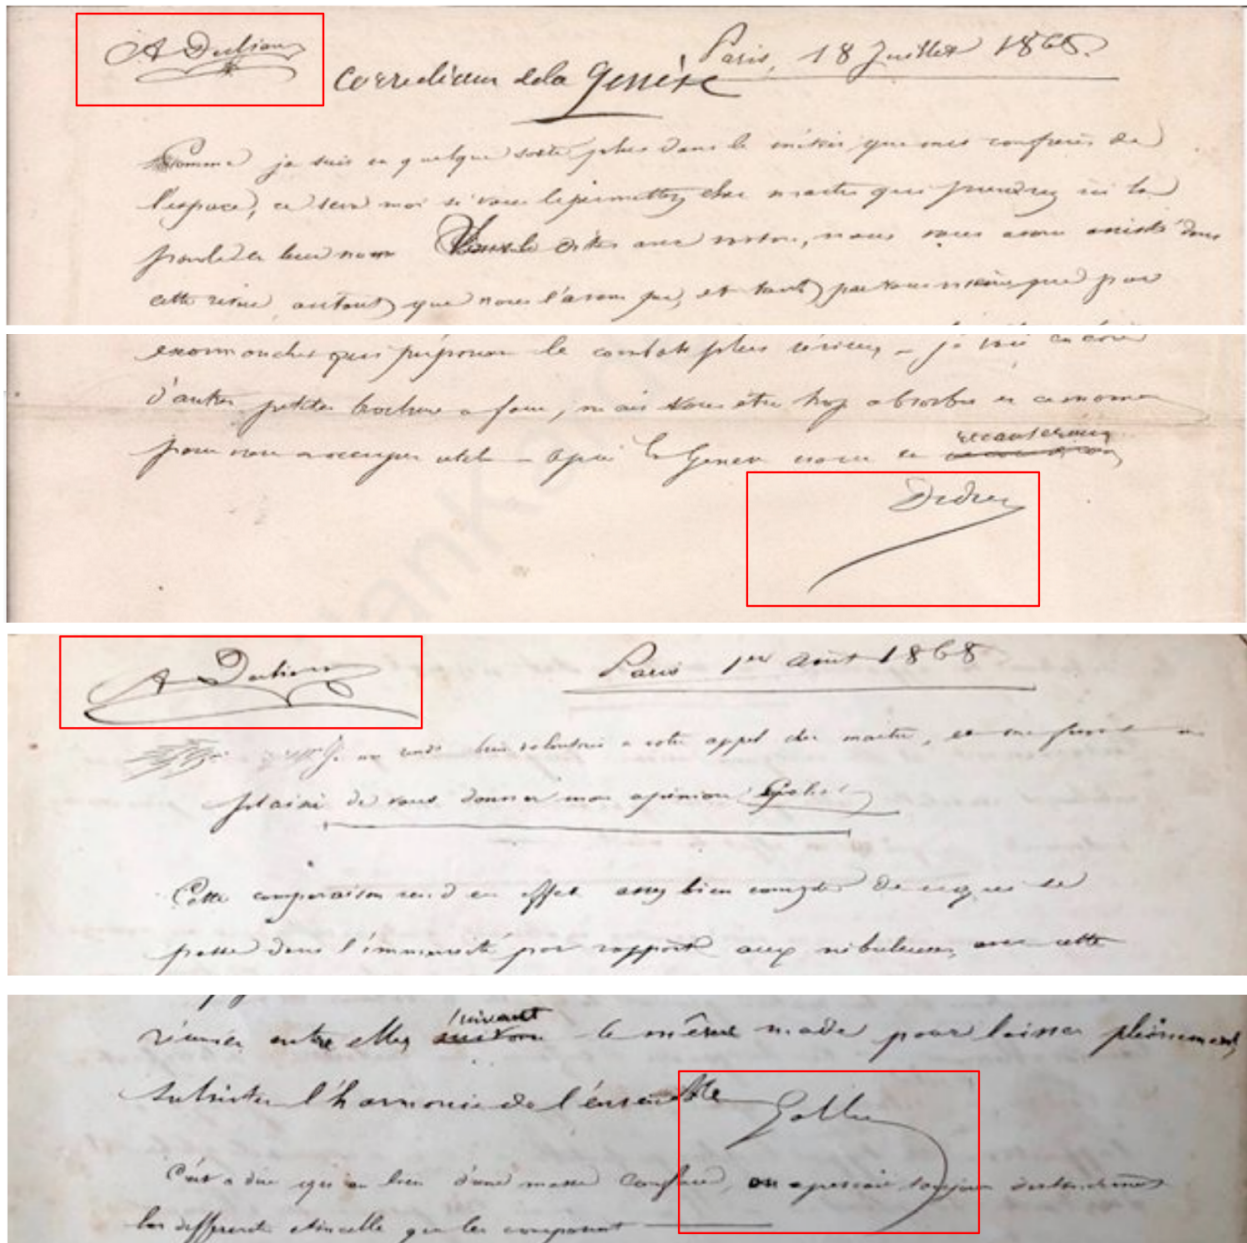 A Desliens
Paris, 18 Juillet 1868.
Correction de la Genèse
Comme je suis en quelque sorte plus dans le métier que mes confrères de
l'espace, ce sera moi si vous le permettez cher maitre qui prendrez ici la
parole en leur nom Vous le dites avec raison, nous vous avons assisté dans
cette revue autant que nous l'avons pu, et tant par vous même que par
escarmouches qui préparent le combat plus sérieux - je vois encore
d'autres petites brochures a faire, mais vous êtes trop absorbé en ce moment
pour vous en occuper utilement - après la Genèse nous en recauserons
Didier
A Desliens
Paris 1er Août 1868
Je me rends bien volontiers a votre appel cher maitre, et me ferai un
plaisir de vous donner mon opinion Galilée
Cette comparaison rend en effet assez bien compte de ce qui se
passe dans l'immensité par rapport aux nébuleuses, avec cette
réunies entre elles suivant le même mode pour laisser pleinement
subsister l'harmonie de l'ensemble
Galilée
C'est a dire qu'au lieu d'une masse confuse, on aperçoit toujours distinctement
les différentes étincelles qui les composent